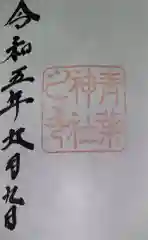 令和五年九月九日
青葉
神社
之印